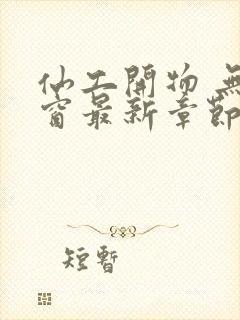 仙工開物 無
窗最新章節
短暫